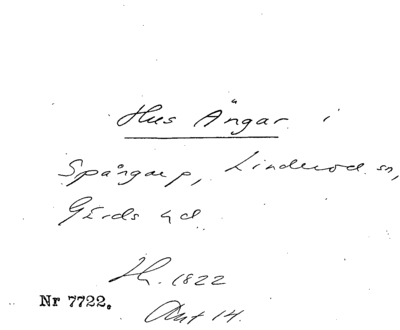 Hus Ängar i
Spångarp, Linderöd sn,
Gärds hd
H. 1822
Nr 7722.
Akt 14.